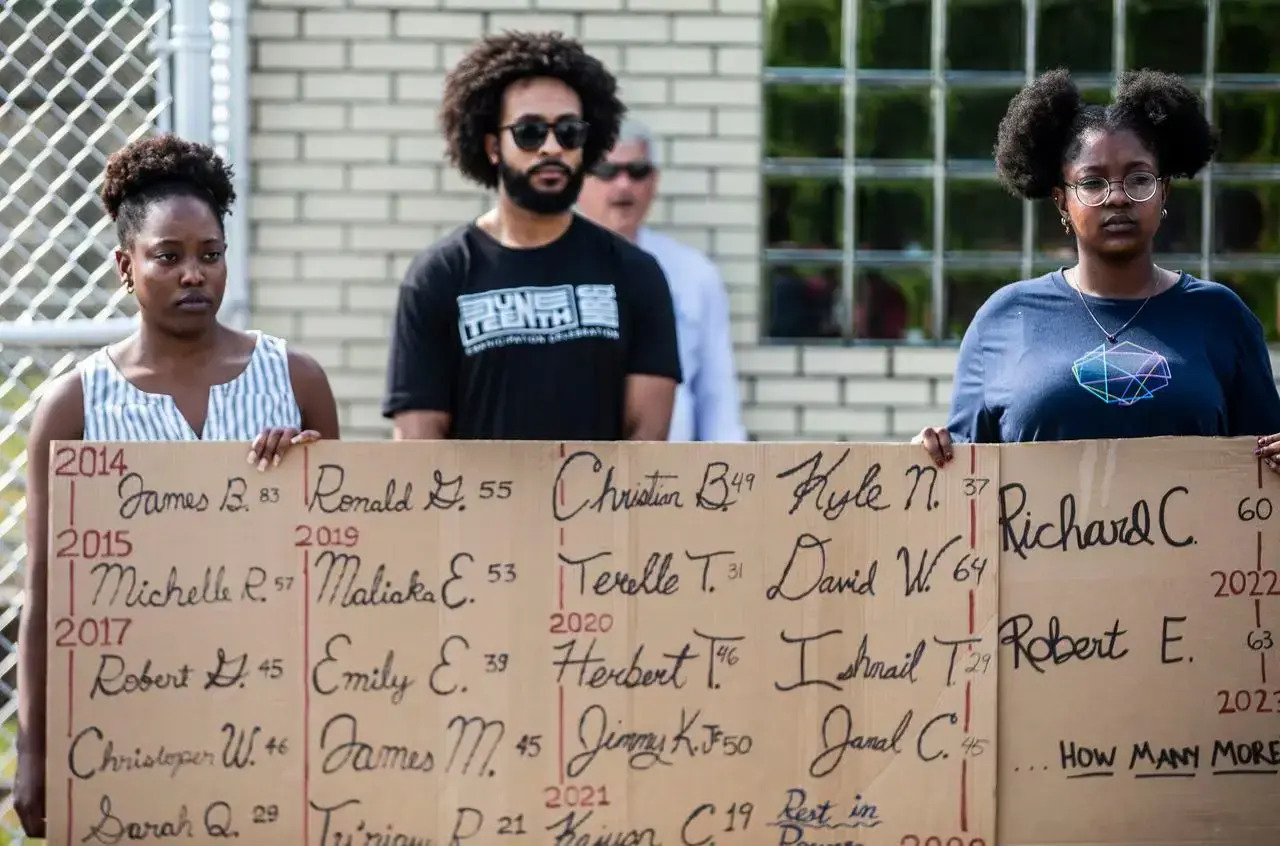 JUNETEENTH
EMANCIPATION CELEBRATION
2014
James B. 83
2015
Michelle R. 57
2017
Robert G. 45
Christoper W. 46
Sarah Q. 29
Ronald G. 55
2019
Maliaka E. 53
Emily E. 39
James M. 45
21
Christian B. 49
Terelle T. 31
2020
Herbert T. 46
Jimmy K. Jr 50
2021
C. 19
Kyle N. 37
David W. 64
Ishmail T. 29
Janal C. 45
Rest in
Richard C. 60
2022
Robert E. 63
2023
... HOW MANY MORE